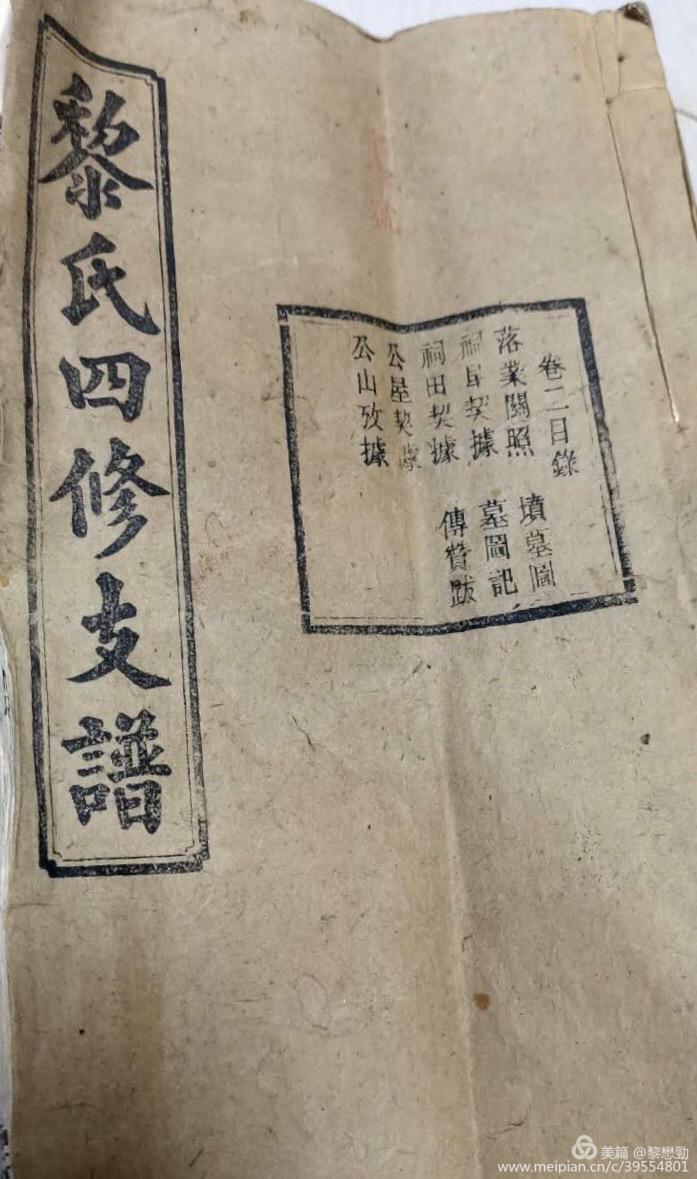 黎氏四修支譜
卷二目錄
落業關照 墳墓圖
祠屋契據 墓圖記
祠田契據 傳贊跋
公屋契據
公山攷據
美篇 @黎懋勁
www.meipian.cn/c/39554801